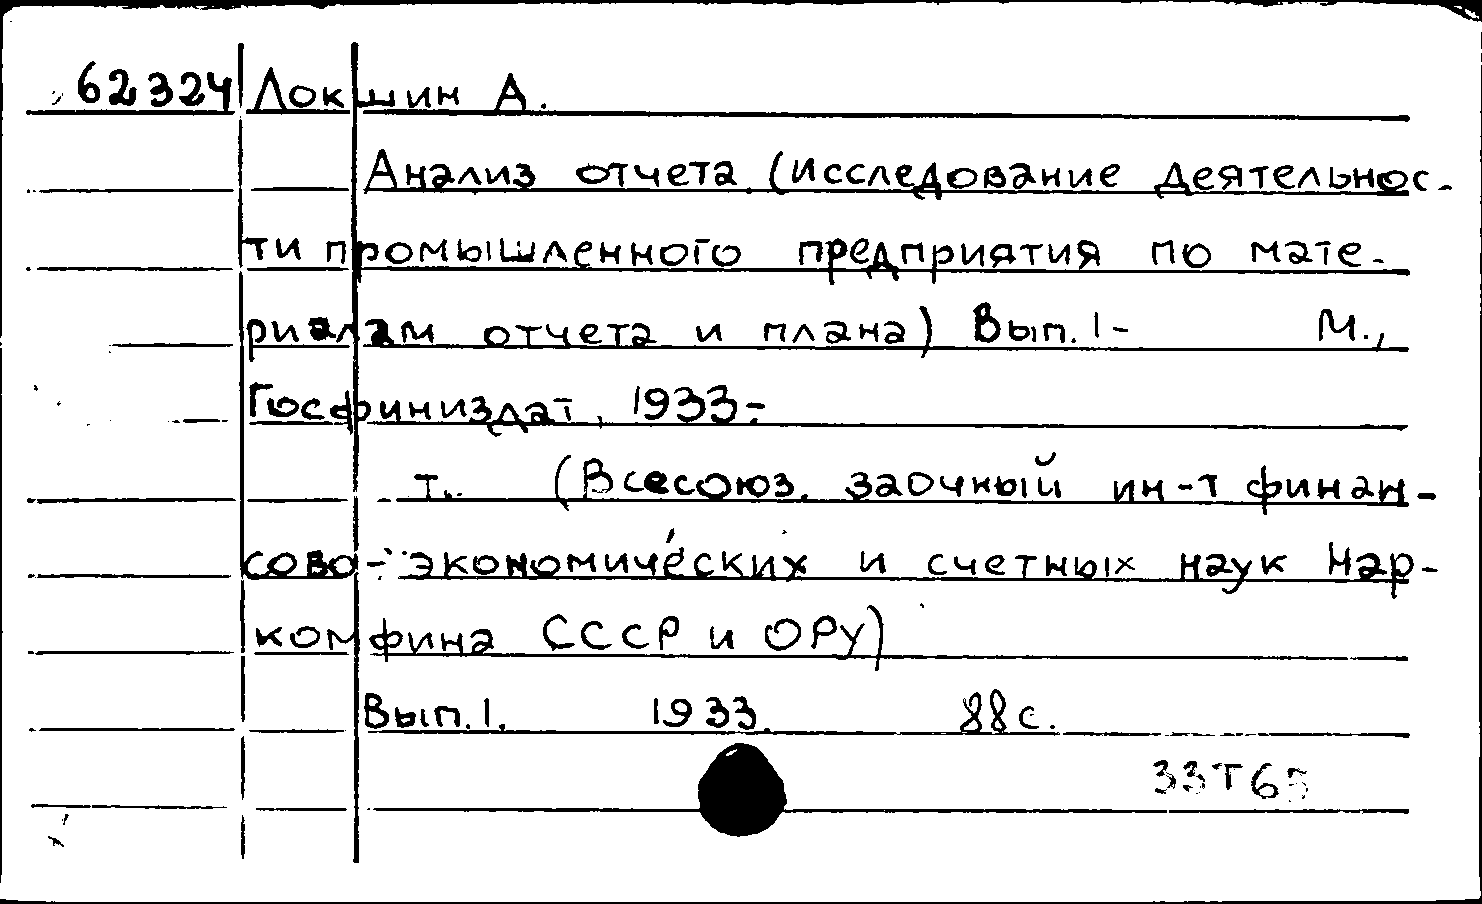 62324 Локшин А.
Анализ отчета (Исследование деятельнос-
ти промышленного предприятия по мате-
риалам отчета и плана) Вып. 1- М.,
Госфиниздат, 1933-
т. (Всесоюз. заочный ин-т финан-
сово-экономических и счетных наук Нар-
комфина СССР и ОРУ)
Вып. 1. 1933. 88 с.
33Т65